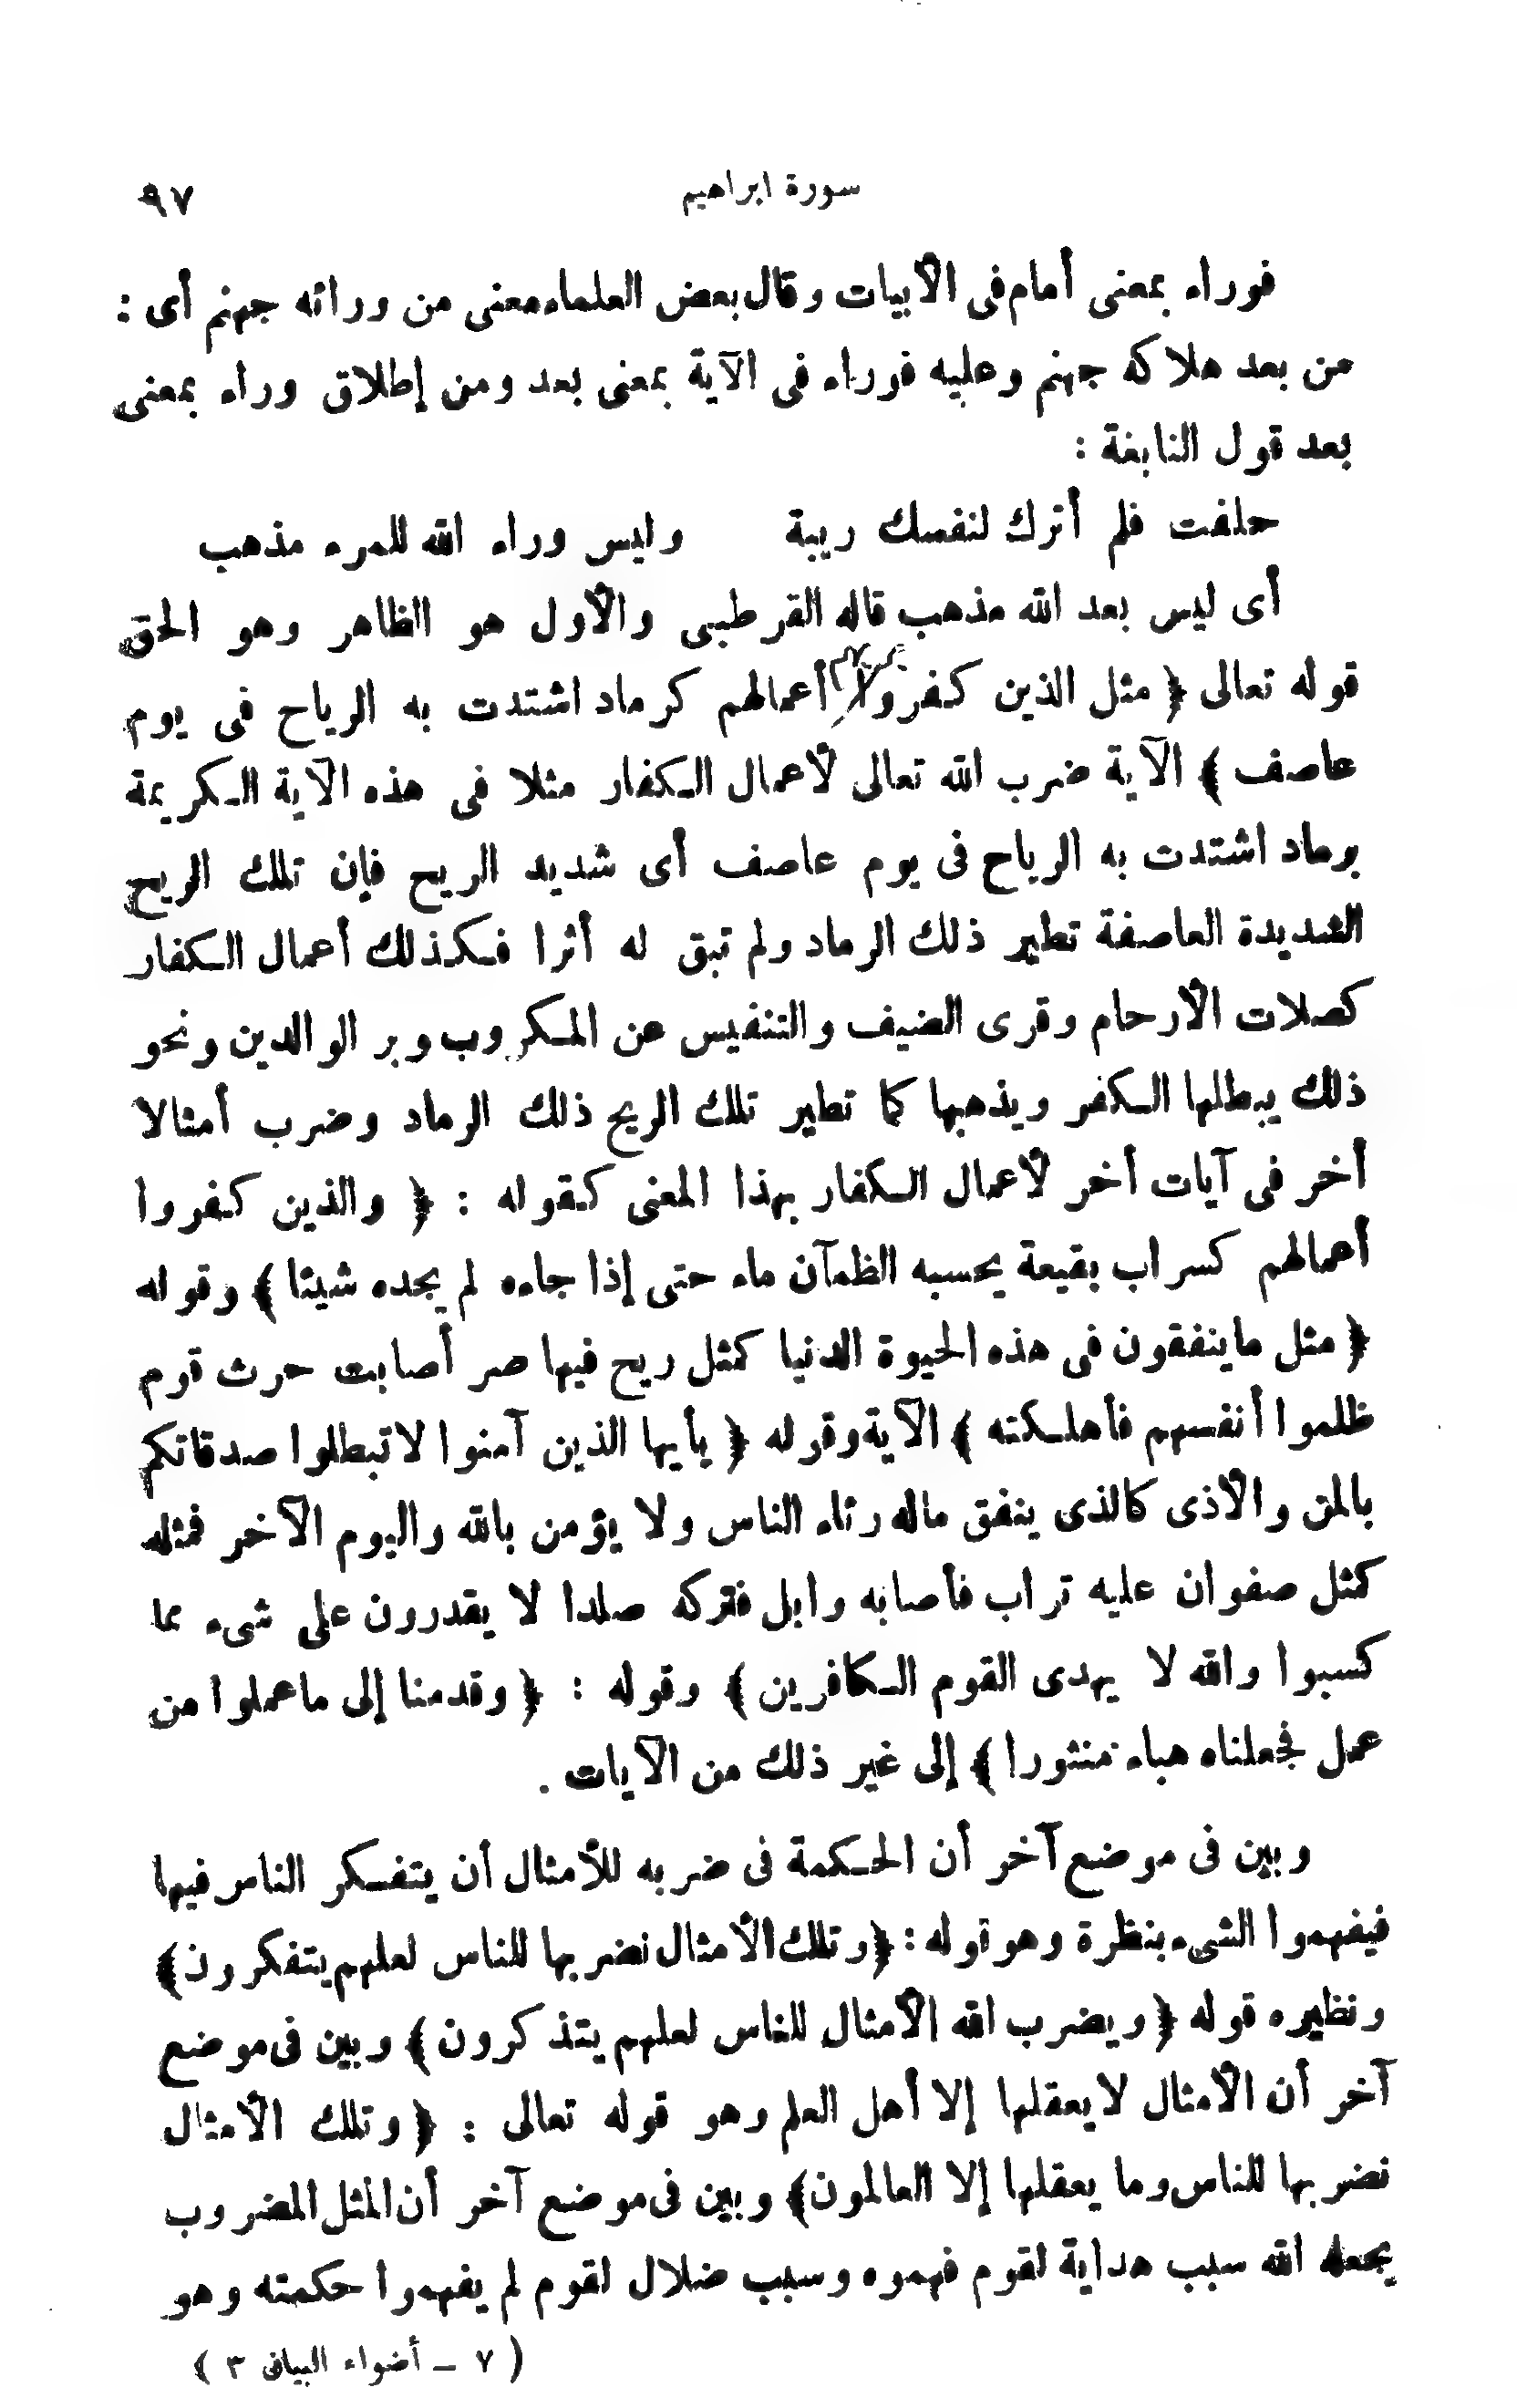 سورة ابراهيم ٩٧
فوراء بمعنى أمام فى الأبيات وقال بعض العلماء معنى من ورائه جهنم أى :
من بعد هلاكه جهنم وعليه فوراء فى الآية بمعنى بعد ومن إطلاق وراء بمعنى
بعد قول النابغة :
حلفت فلم أترك لنفسك ريبة وليس وراء الله للمرء مذهب
أى ليس بعد الله مذهب قاله القرطبى والأول هو الظاهر وهو الحق
قوله تعالى ﴿ مثل الذين كفروا بربهم أعمالهم كرماد اشتدت به الرياح فى يوم
عاصف ﴾ الآية ضرب الله تعالى لأعمال الكفار مثلا فى هذه الآية الكريمة
برماد اشتدت به الرياح فى يوم عاصف أى شديد الريح فإن تلك الريح
الشديدة العاصفة تطير ذلك الرماد ولم تبق له أثرا فكذلك أعمال الكفار
كصلات الأرحام وقرى الضيف والتنفيس عن المكروب وبر الوالدين ونحو
ذلك يبطلها الكفر ويذهبها كما تطير تلك الريح ذلك الرماد وضرب أمثالا
أخر فى آيات أخر لأعمال الكفار بهذا المعنى كقوله : ﴿ والذين كفروا
أعمالهم كسراب بقيعة يحسبه الظمآن ماء حتى إذا جاءه لم يجده شيئا ﴾ وقوله
﴿ مثل ما ينفقون فى هذه الحيوة الدنيا كمثل ريح فيها صر أصابت حرث قوم
ظلموا أنفسهم فأهلكته ﴾ الآية وقوله ﴿ يأيها الذين آمنوا لا تبطلوا صدقاتكم
بالمن والأذى كالذى ينفق ماله رئاء الناس ولا يؤمن بالله واليوم الآخر فمثله
كمثل صفوان عليه تراب فأصابه وابل فتركه صلدا لا يقدرون على شىء مما
كسبوا والله لا يهدى القوم الكافرين ﴾ وقوله : ﴿ وقدمنا إلى ما عملوا من
عمل فجعلناه هباء منثورا ﴾ إلى غير ذلك من الآيات .
وبين فى موضع آخر أن الحكمة فى ضربه للأمثال أن يتفكر الناس فيها
فيفهموا الشىء بنظرة وهو قوله : ﴿ وتلك الأمثال نضربها للناس لعلهم يتفكرون ﴾
ونظيره قوله ﴿ ويضرب الله الأمثال للناس لعلهم يتذكرون ﴾ وبين فى موضع
آخر أن الأمثال لا يعقلها إلا أهل العلم وهو قوله تعالى : ﴿ وتلك الأمثال
نضربها للناس وما يعقلها إلا العالمون ﴾ وبين فى موضع آخر أن المثل المضروب
يجعله الله سبب هداية لقوم فهموه وسبب ضلال لقوم لم يفهموا حكمته وهو
( ٧ – أضواء البيان ٣ )